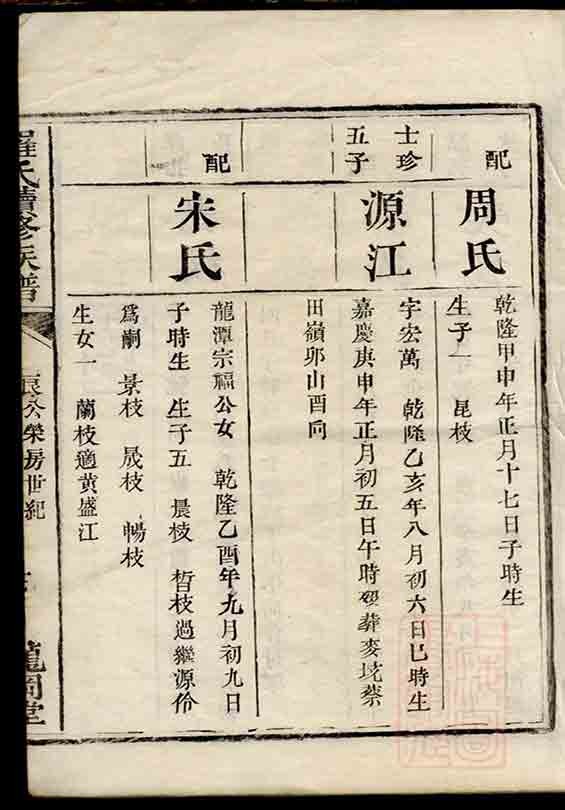 配
周氏
乾隆甲申年正月十七日子時生
生子一 昆枝
士珍
五子
源江
字宏萬 乾隆乙亥年八月初六日巳時生
嘉慶庚申年正月初五日午時歿葬麥坑蔡
田嶺卯山酉向
配
宋氏
龍潭宗福公女 乾隆乙酉年九月初九日
子時生 生子五 晨枝 晳枝過繼源伶
為嗣 景枝 晟枝 暢枝
生女一 蘭枝適黃盛江
羅氏續修族譜
公榮房世紀
龍岡堂